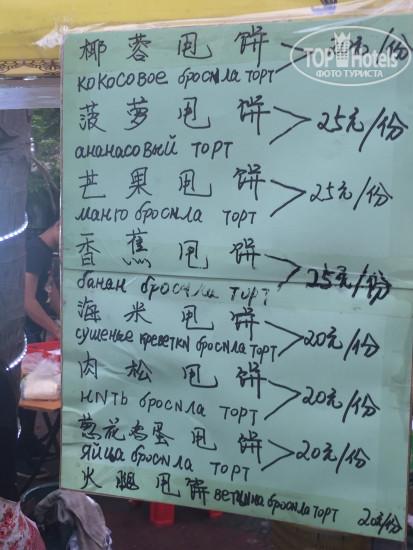 TOPHotels
ФОТО ТУРИСТА
椰蓉甩饼 元/份
кокосовое бросила торт
菠萝甩饼 25元/份
ананасовый торт
芒果甩饼 25元/份
манго бросила торт
香蕉甩饼 25元/份
банан бросила торт
海米甩饼 20元/份
сушеные креветки бросила торт
肉松甩饼 20元/份
нить бросила торт
葱花鸡蛋甩饼 20元/份
яйца бросила торт
火腿甩饼 ветчина бросила торт 20元/份